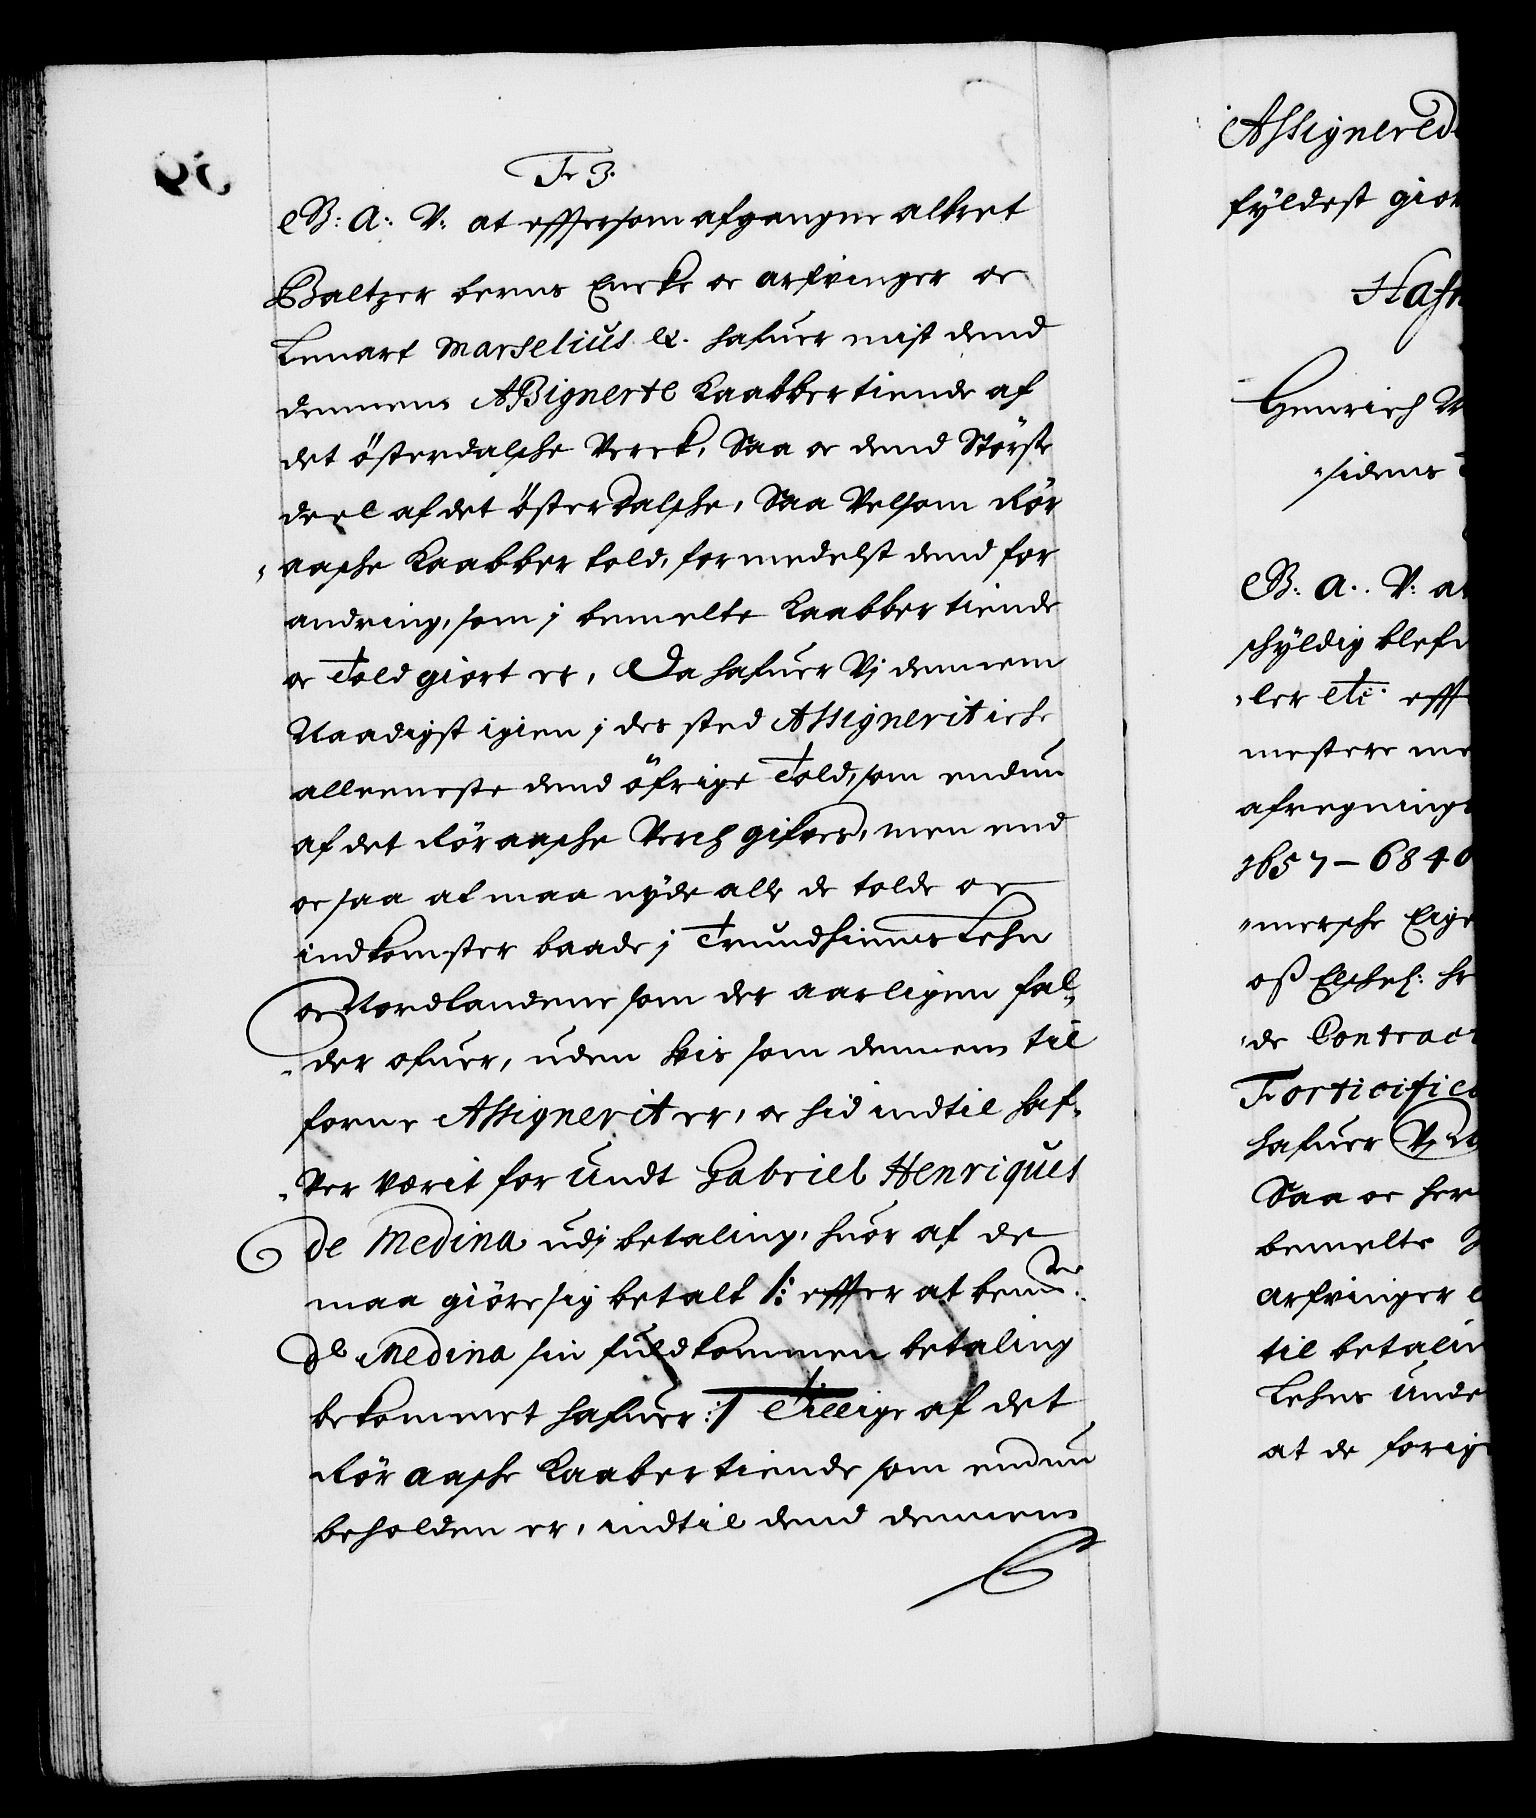 Fr 3.
B: A: V: at effersom afgangne albret
Baltzer berns Encke oc arfvinger oc
Lenart Marselius etc. hafuer mist dend
dennem Assignerte Kaabbertiende af
det österdalsche Verck, Saa oc dend Störste
deel af det österdalsche, Saa Velsom Rör
aasche Kaabber told, formedelst dend for
andring, som j bemelte Kaabbertiende
oc Told giort er, Da hafuer Vj dennem
Naadigst igien j des sted Assignerit iche
alleeneste dend öfrige Told, som endnu
af det Röraasche Verch gifves, men end
oc saa at maa nyde alle de tolde oc
indkomster baade j Trundhiems Lehn
oc Nordlandene som der aarligen fal„
„der ofuer, uden hvis som dennem til
forne Assignerit er, oc hid indtil haf„
„ver verit for undt Gabriel Henriques
de Medina udj betaling, huor af de
maa giöre sig betalt /: effter at bemte
de Medina sin fuldkommen betaling
bekommet hafuer :/ Tillige af det
Röraasche Kaabertiende som endnu
beholden er, indtil dend dennem
Assignerede
fyldest giør
Hafn
Henrich M
„sidens
B: A: V: at
schyldig blef
„ler etc eff
mestere me
afregning
1657 – 6840
„mersche Eige
oss Elschel: he
„de Contract
Forticific
hafuer Vj
Saa oc her
bemelte
arfvinger
til betalin
Lehns unde
at de forig